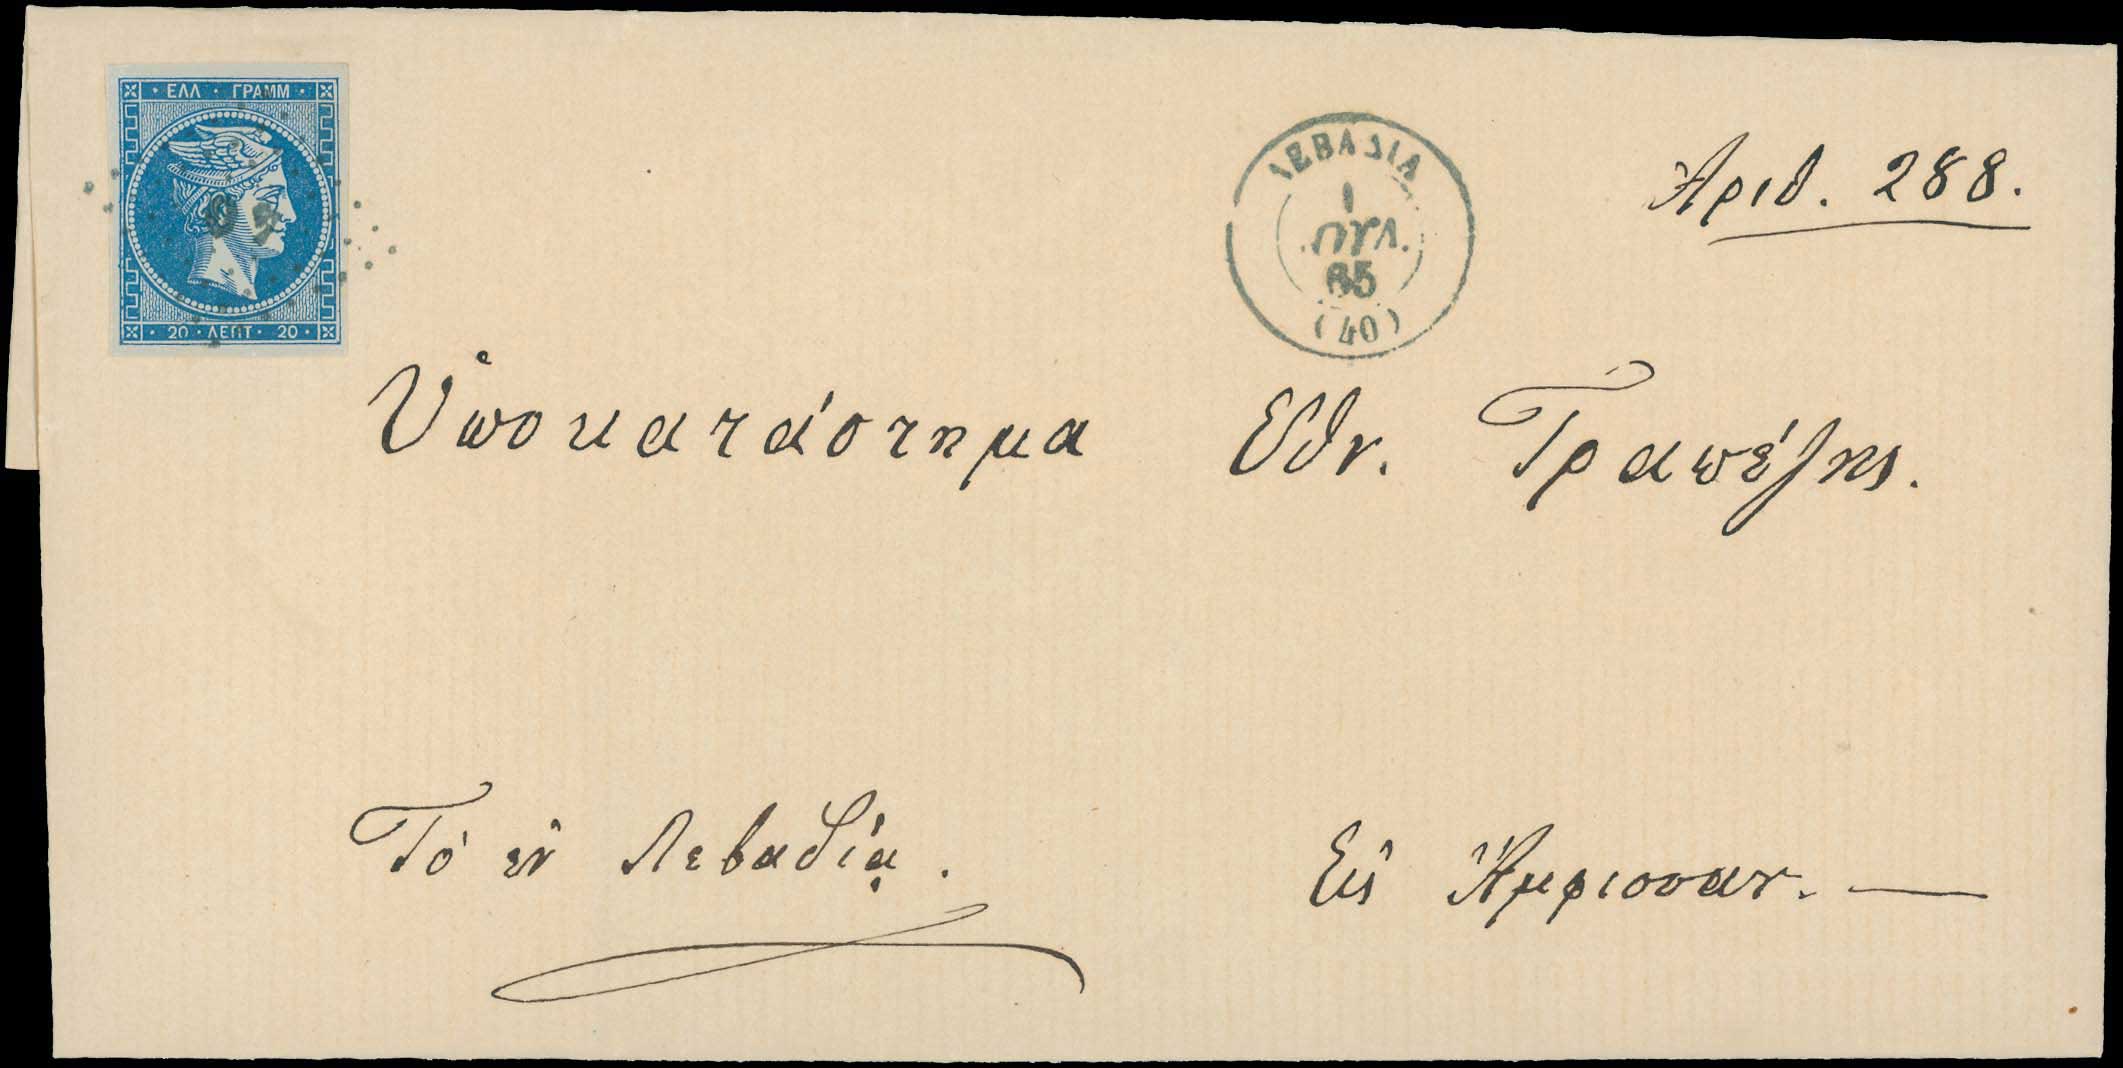 ΕΛΛ · ΓΡΑΜΜ
20 · ΛΕΠΤ · 20
ΛΕΒΑΔΙΑ
1
ΙΟΥΛ.
65
(40)
Ἀριθ. 288.
Ὑποκατάστημα Ἐθν. Τραπέζης.
Τὸ ἐν Λεβαδίᾳ.
Εἰς Ἄμφισσαν. —